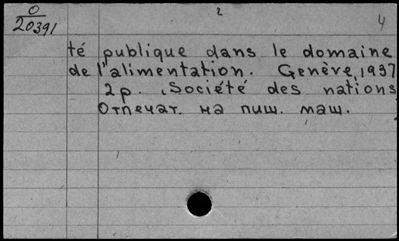 O
20391
2
4
té publique dans le domaine
de l'alimentation. Genève, 1937
2p. (Société des nations
Отпечат. на пиш. маш.